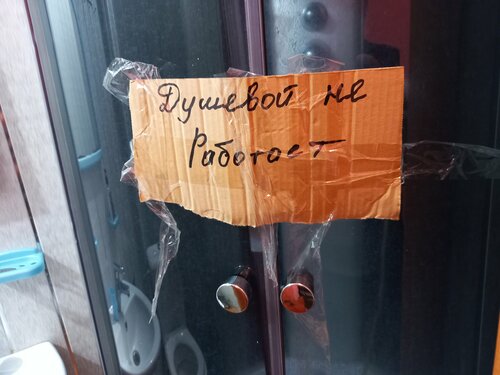 Душевой не
Работает